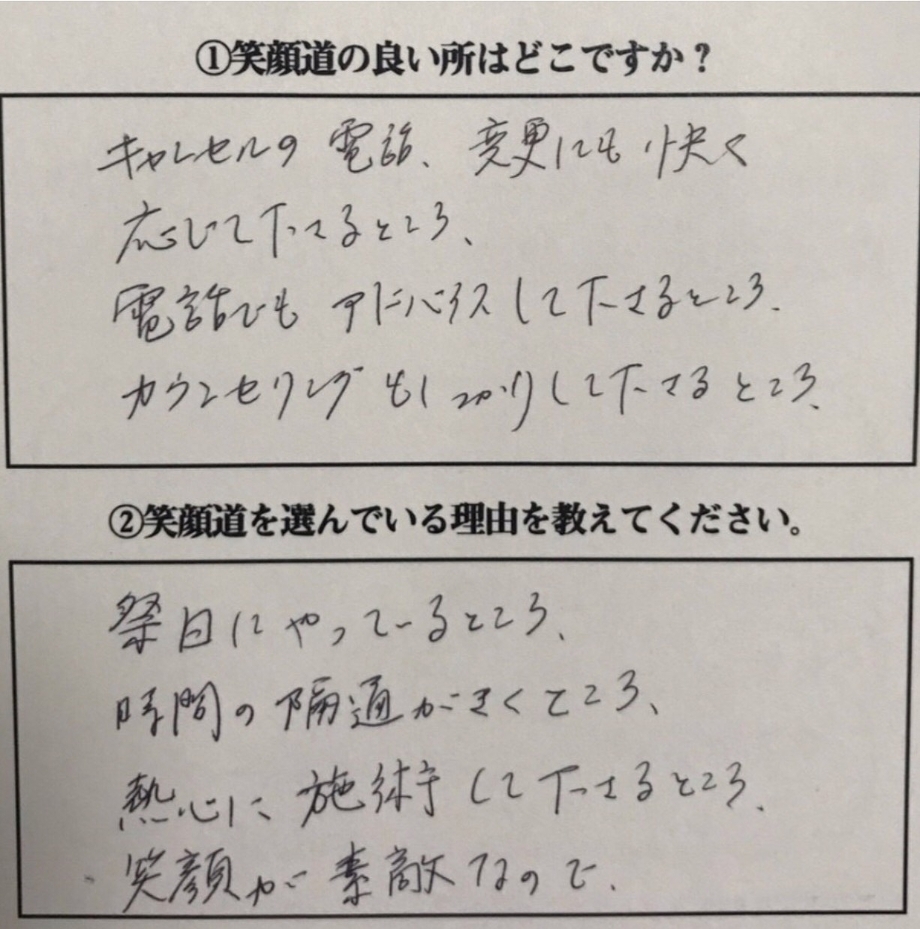 ①笑顔道の良い所はどこですか？
キャンセルの電話、変更にも快く
応じて下さるところ、
電話でもアドバイスして下さるところ、
カウンセリングもしっかりして下さるところ、
②笑顔道を選んでいる理由を教えてください。
祭日にやっているところ、
時間の隔通がきくところ、
熱心に施術して下さるところ、
笑顔が素敵なので、